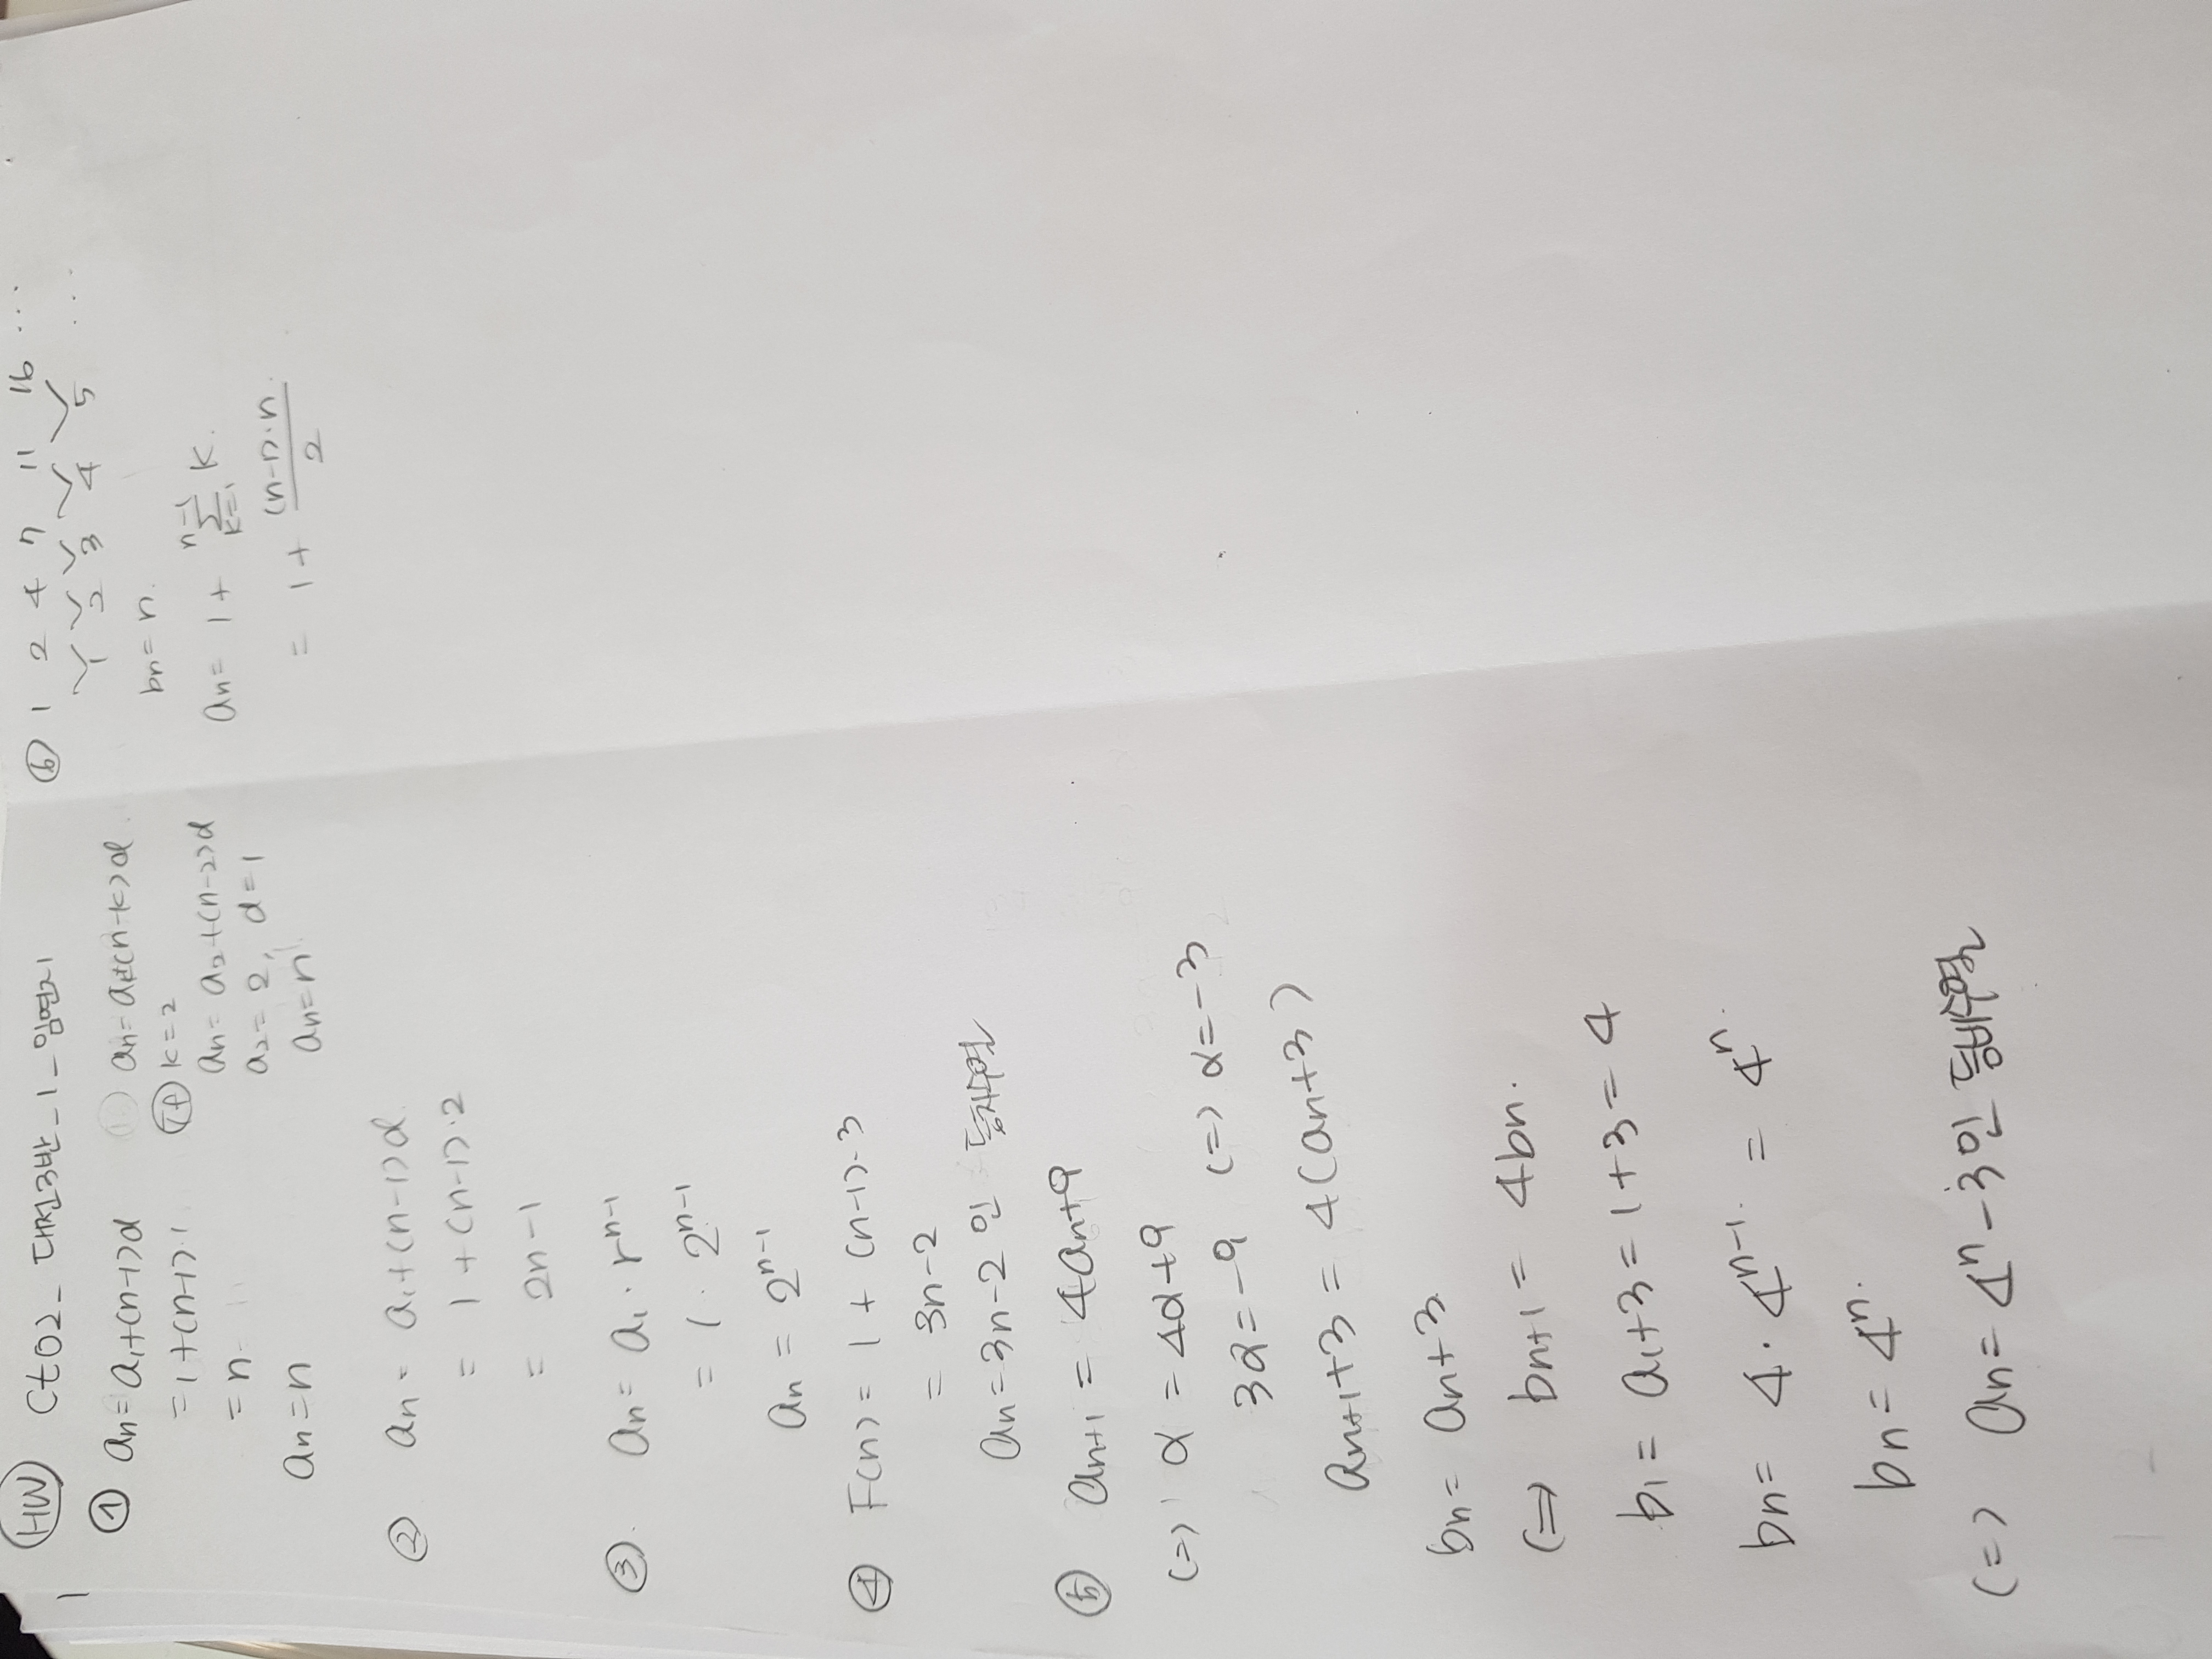 HW Ct02_대전3반_1_임연지
1
① an = a1+(n-1)d
=1+(n-1)·1
= n
an=n
an= ak+(n-k)d
if k=2
an= a2+(n-2)d
a2= 2, d=1
an=n
② an = a1+(n-1)d
= 1+(n-1)·2
= 2n-1
③ an= a1·r^n-1
= 1·2^n-1
an = 2^n-1
④ F(n)= 1+(n-1)·3
= 3n-2
an=3n-2 인 등차수열
⑤ an+1 = 4an+9
(=) α = 4α+9
3α=-9 (=) α=-3
an+1+3 = 4(an+3)
bn= an+3
(=) bn+1 = 4bn.
b1= a1+3=1+3=4
bn= 4·4^n-1 = 4^n
bn= 4^n
(=) an= 4^n-3인 등비수열
⑥ 1 2 4 7 11 16 ...
1 2 3 4 5 ...
bn= n.
an= 1+ n-1 Σ k=1 K.
= 1+ (n-1)·n / 2